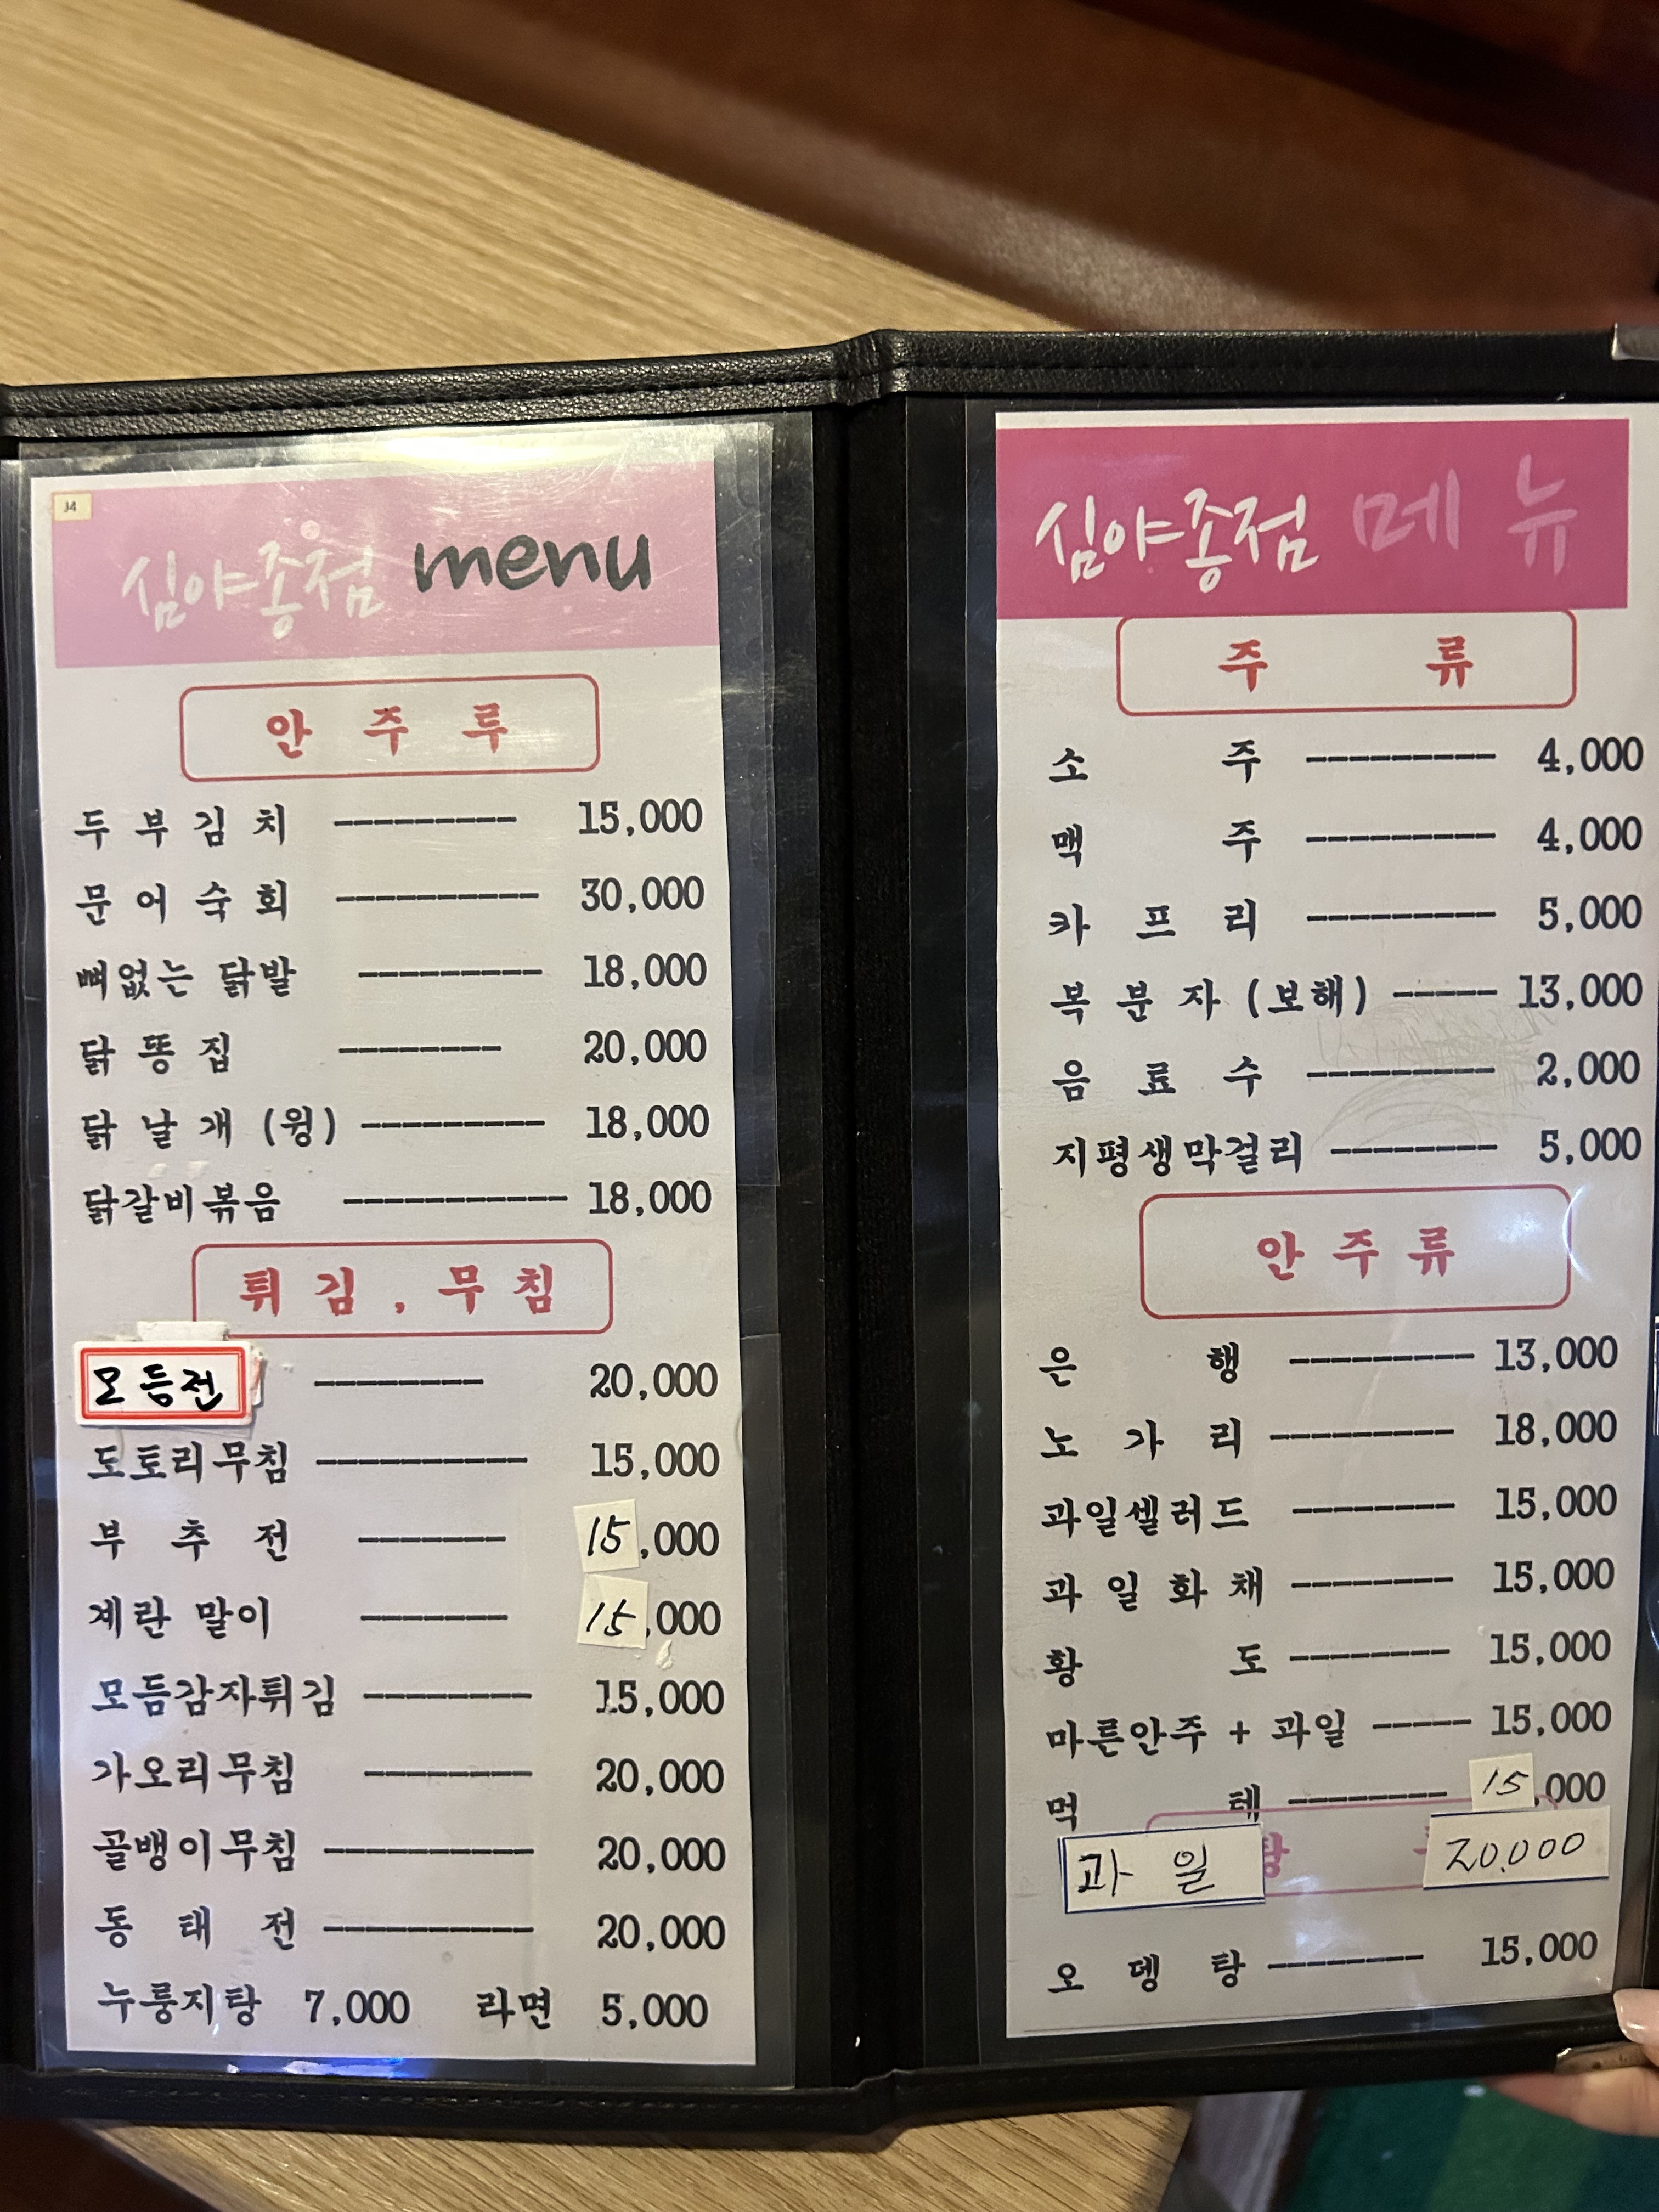 J4
심야종점 menu
안 주 류
두 부 김 치 --------- 15,000
문 어 숙 회 ---------- 30,000
뼈없는 닭발 --------- 18,000
닭 똥 집 -------- 20,000
닭 날 개 (윙) --------- 18,000
닭갈비볶음 ----------- 18,000
튀 김 , 무 침
모듬전 -------- 20,000
도토리무침 ---------- 15,000
부 추 전 ------- 15,000
계란 말이 ------- 15,000
모듬감자튀김 -------- 15,000
가오리무침 -------- 20,000
골뱅이무침 ---------- 20,000
동 태 전 ---------- 20,000
누룽지탕 7,000 라면 5,000
심야종점 메뉴
주 류
소 주 --------- 4,000
맥 주 --------- 4,000
카 프 리 --------- 5,000
복 분 자 (보해) ----- 13,000
음 료 수 --------- 2,000
지평생막걸리 -------- 5,000
안 주 류
은 행 --------- 13,000
노 가 리 --------- 18,000
과일셀러드 -------- 15,000
과 일 화 채 -------- 15,000
황 도 -------- 15,000
마른안주 + 과일 ----- 15,000
먹 테 -------- 15,000
과 일 20,000
오 뎅 탕 -------- 15,000